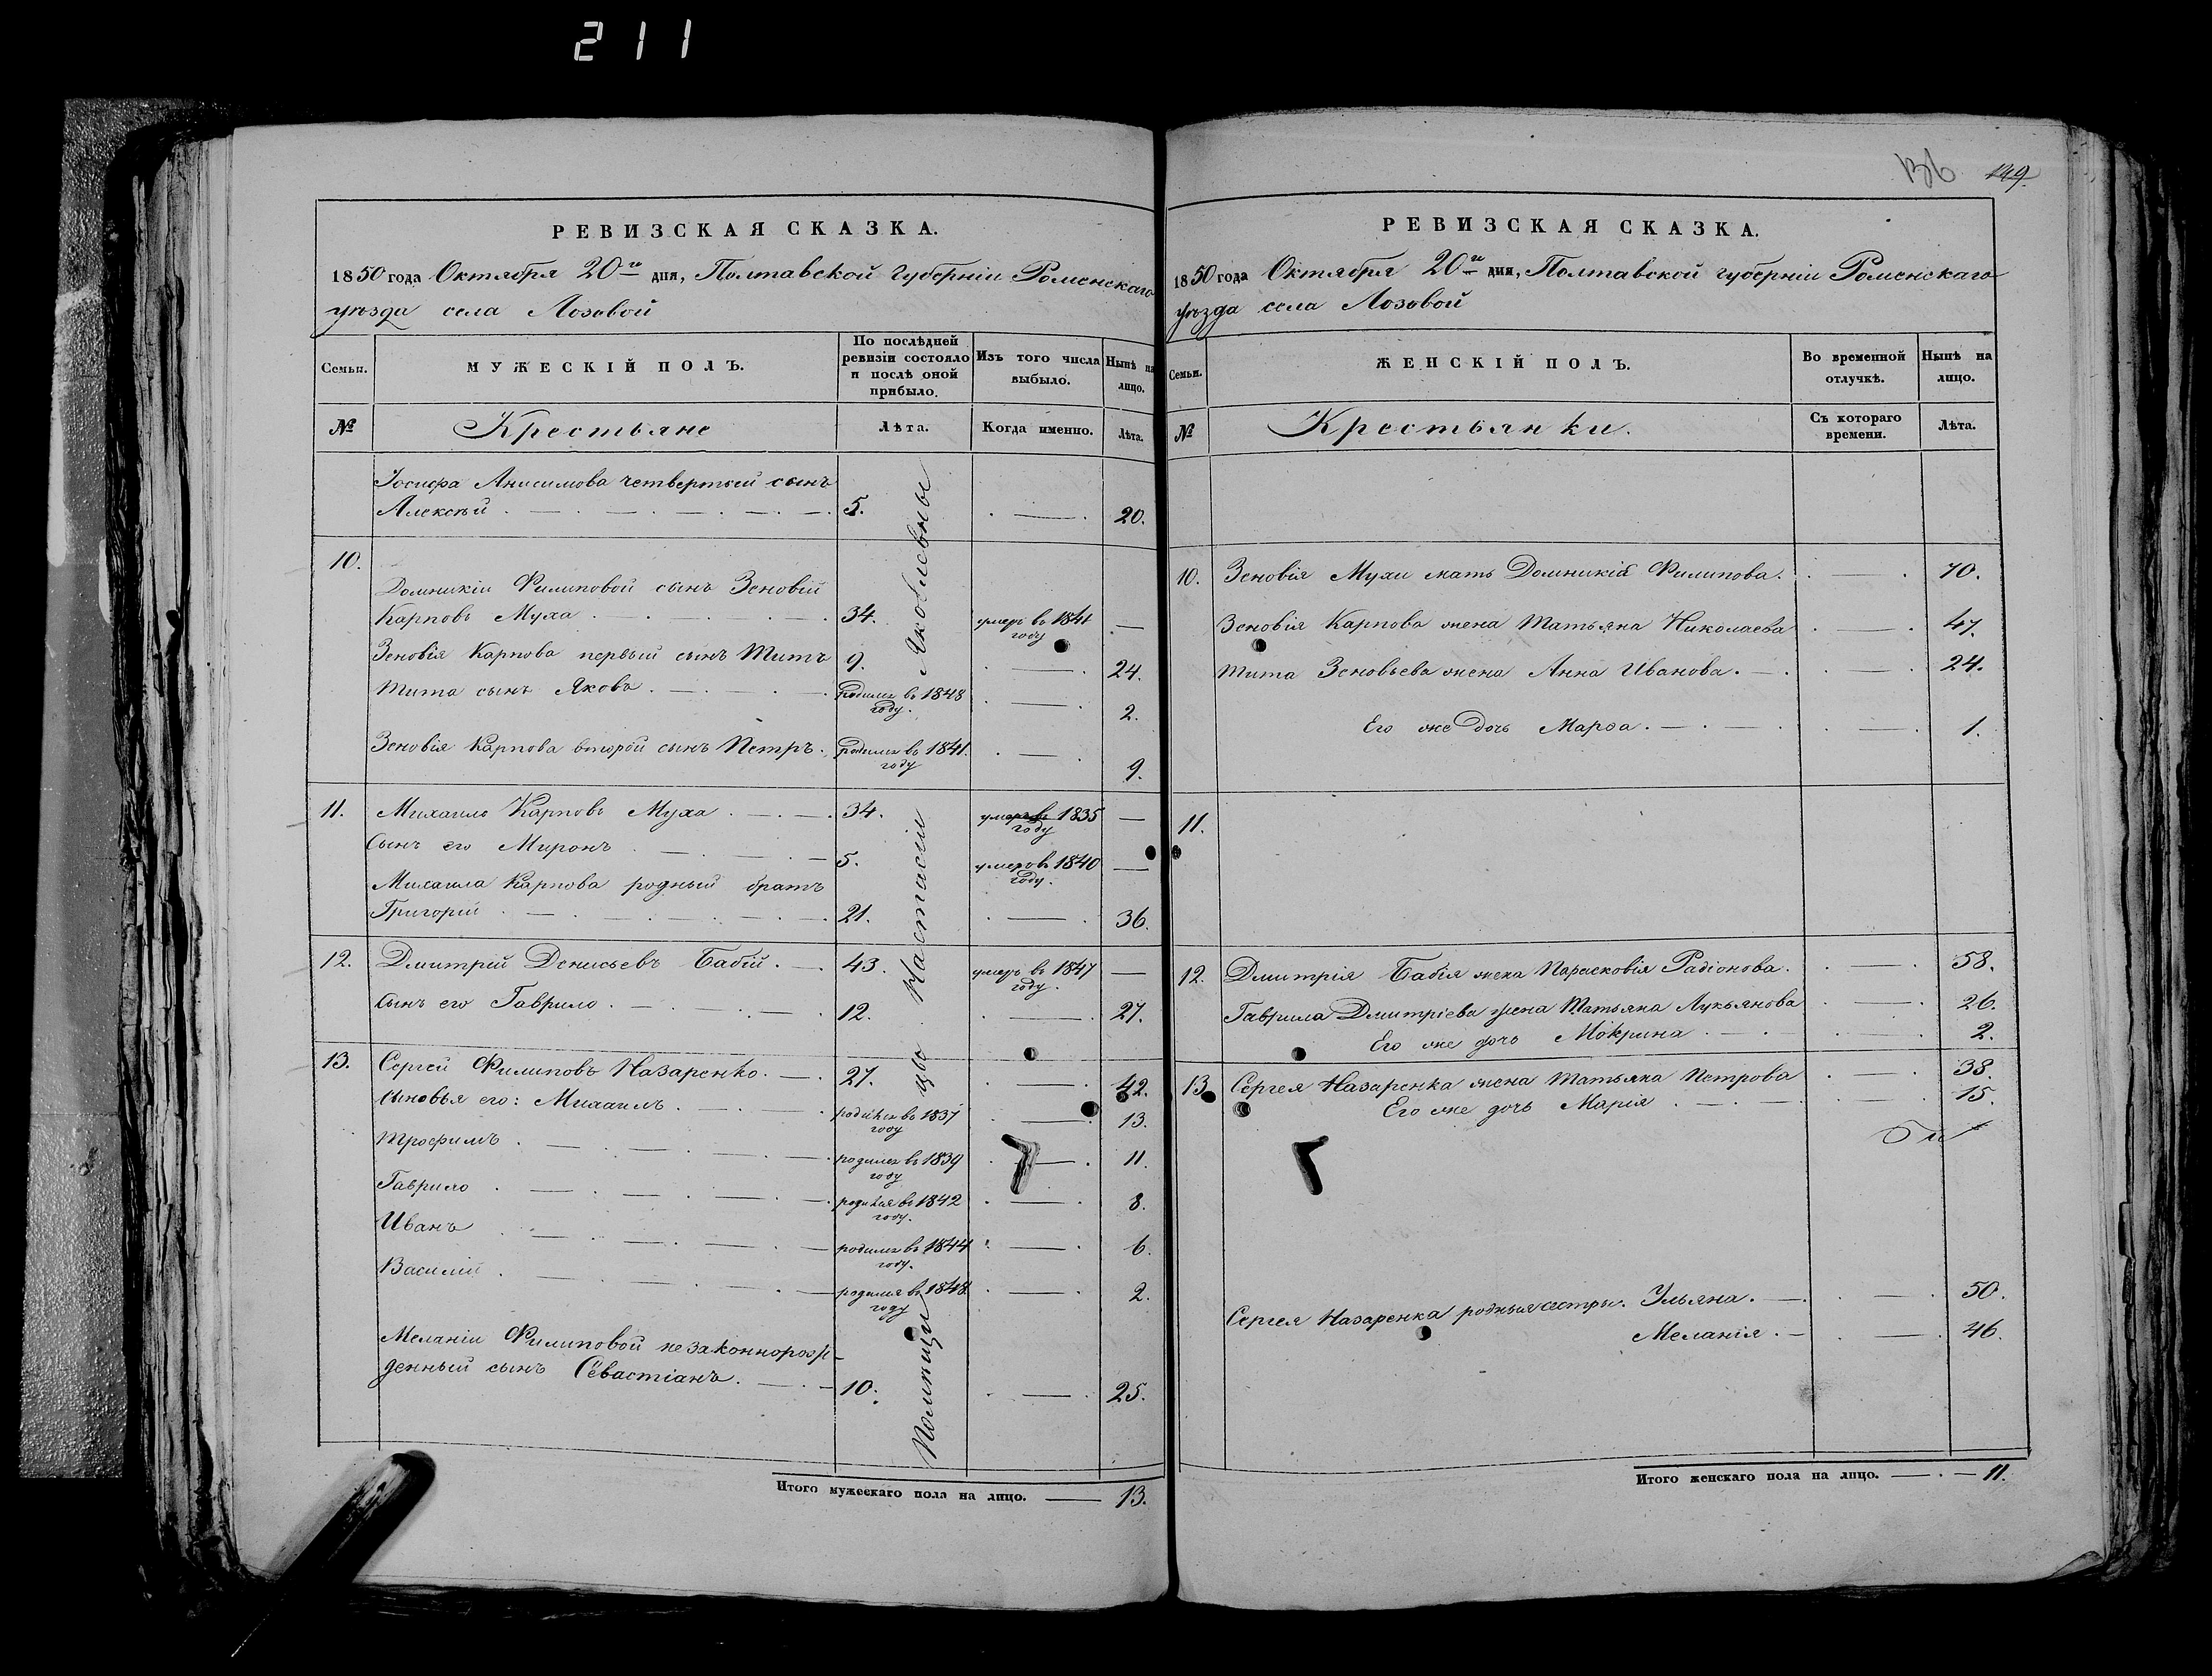 211
136 149.
РЕВИЗСКАЯ СКАЗКА.
1850 года Октября 20го дня, Полтавской губерніи Роменскаго
уѣзда села Лозовой
Семьи.
МУЖЕСКІЙ ПОЛЪ.
По послѣдней ревизіи состояло и послѣ оной прибыло.
Изъ того числа выбыло.
Нынѣ на лицо.
№
Крестьяне
Лѣта.
Когда именно.
Лѣта.
Іосифа Анисимова четвертый сынъ
Алексѣй 5. 20.
10.
Домникіи Филиповой сынъ Зеновій
Карповъ Муха 34. умеръ въ 1841 году —
Зеновія Карпова первый сынъ Титъ 9. 24.
Тита сынъ Яковъ родился въ 1848 году. 2.
Зеновія Карпова второй сынъ Петръ родился въ 1841. году 9.
11. Михаилъ Карповъ Муха 34. умеръ въ 1835 году —
Сынъ его Миронъ 5. умеръ въ 1840 году. —
Михаила Карпова родный братъ
Григорій 21. 36.
12. Дмитрій Денисьевъ Бабій 43. умеръ въ 1847 году. —
Сынъ его Гаврило 12. 27.
13. Сергей Филиповъ Назаренко 27. 42.
Сыновья его: Михаилъ родился въ 1837 году 13.
Трофимъ родился въ 1839 году 11.
Гаврило родился въ 1842 году. 8.
Иванъ родился въ 1844 году. 6.
Василій родился въ 1848 году 2.
Меланіи Филиповой незаконнорож-
денный сынъ Севастіанъ 10. 25.
Помѣщицы Настасіи Яковлевны
Итого мужескаго пола на лицо. — 13.
РЕВИЗСКАЯ СКАЗКА.
1850 года Октября 20го дня, Полтавской губерніи Роменскаго
уѣзда села Лозовой
Семьи.
ЖЕНСКІЙ ПОЛЪ.
Во временной отлучкѣ.
Нынѣ на лицо.
№
Крестьянки.
Съ котораго времени.
Лѣта.
10. Зеновія Мухи мать Домникія Филипова. 70.
Зеновія Карпова жена Татьяна Николаева 47.
Тита Зеновьева жена Анна Иванова. 24.
Его же дочь Марѳа. 1.
11.
12. Дмитрія Бабія жена Парасковія Радіонова. 58.
Гаврила Дмитріева жена Татьяна Лукьянова 26.
Его же дочь Мокрина 2.
13 Сергея Назаренка жена Татьяна Петрова 38.
Его же дочь Марія 15.
Сергея Назаренка родныя сестры. Ульяна. 50.
Меланія. 46.
Итого женскаго пола на лицо. — 11.